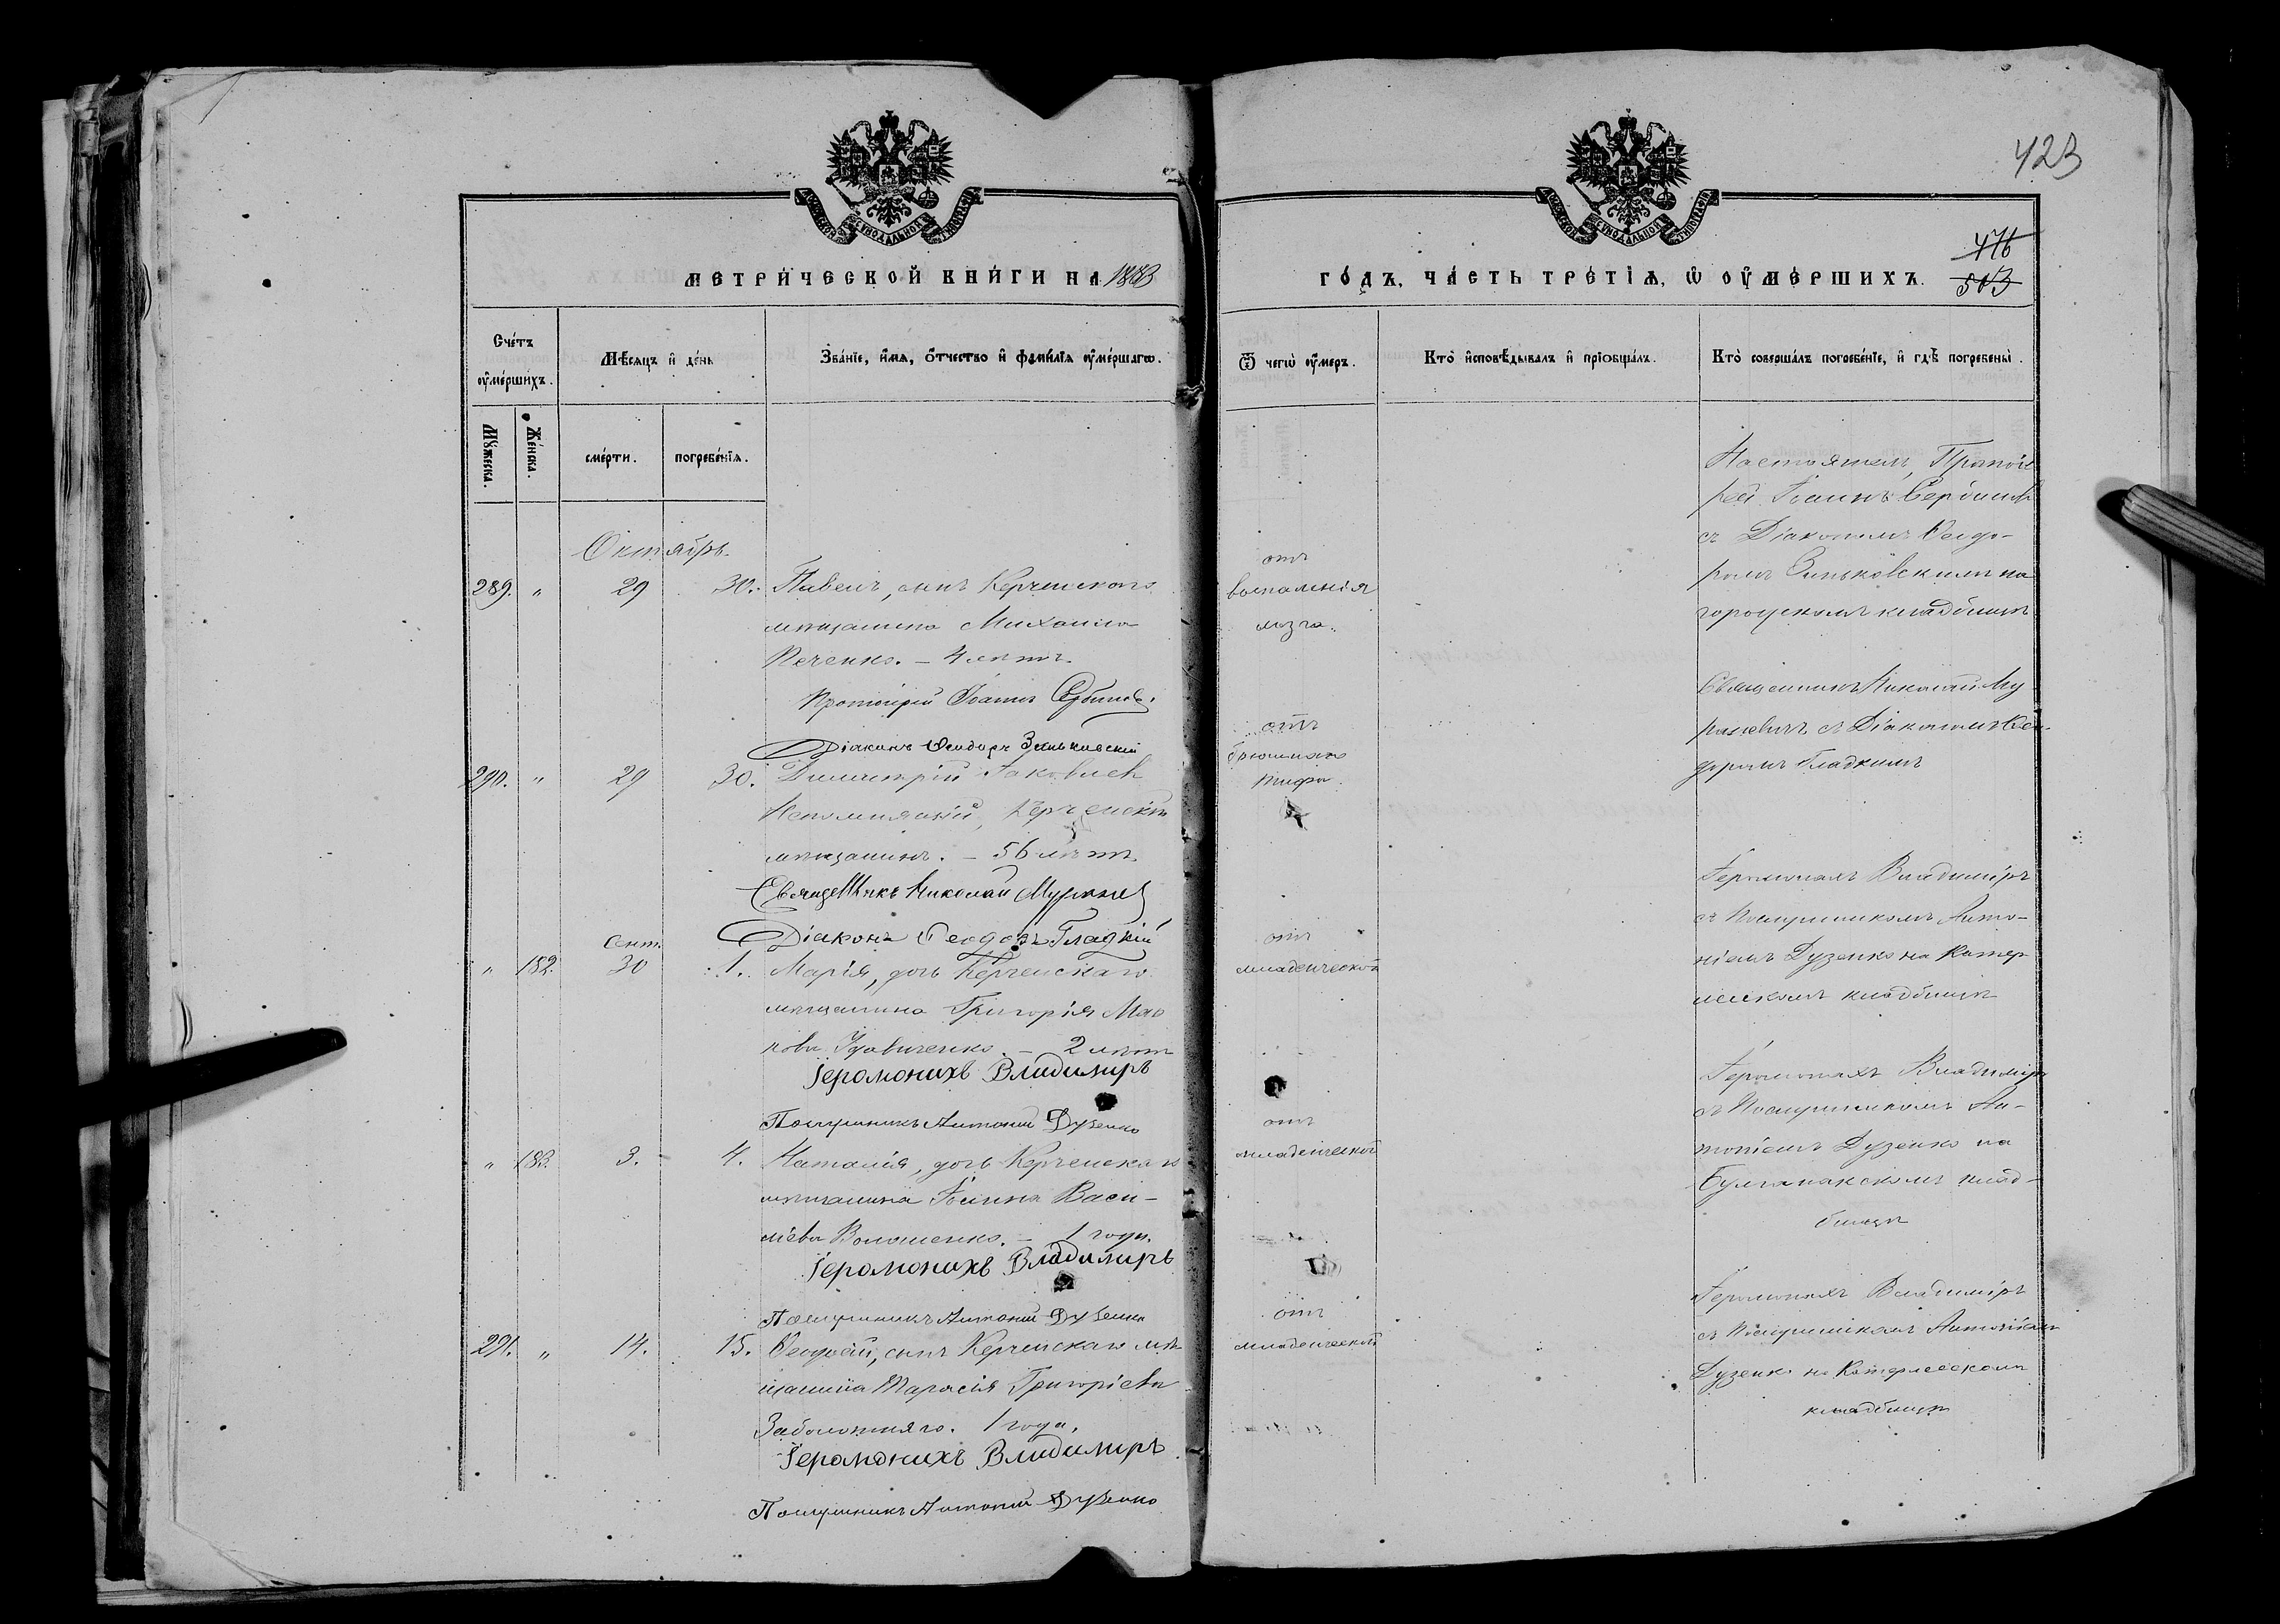 423
476
503
МЕТРИЧЕСКОЙ КНИГИ НА 1883
ГОДЪ, ЧАСТЬ ТРЕТІѦ, Ѡ ОУМЕРШИХЪ.
Счетъ оумершихъ.
Мѣсяцъ и день
Званіе, имя, отчество и фамилія оумершагѡ.
Мужеска.
Женска.
смерти.
погребенія.
Ѿ чегѡ оумеръ.
Кто исповѣдывалъ и пріобщалъ.
Кто совершалъ погребеніе, и гдѣ погребены.
Октябрь.
289. " 29 30. Павелъ, сынъ Керченскаго
мѣщанина Михаила
4 лѣтъ.
Протоіерей Іоаннъ Сербиновъ.
Діаконъ Ѳеодоръ Зеньковскій
отъ
воспаленія
мозга.
Настоятель, Протоіе
рей Іоаннъ Сербиновъ
съ Діакономъ Ѳеодо-
ромъ Зеньковскимъ на
городскомъ кладбищѣ
290. " 29 30. Димитрій Іаковлевъ
Керченскій
мѣщанинъ. – 56 лѣтъ.
Священникъ Николай
Діаконъ Ѳеодоръ Гладкій
отъ
брюшнаго
тифа.
Священникъ Николай Му
съ Діакономъ Ѳео-
доромъ Гладкимъ
Сент.
" 182. 30 1. Марія, дочь Керченскаго
мѣщанина Григорія
– 2 лѣтъ
Іеромонахъ Владимиръ
Послушникъ Антоній Дузенко
отъ
младенческой
Іеромонахъ Владиміръ
съ Послушникомъ Анто-
ніемъ Дузенко на Катер
лезскомъ кладбищѣ
" 183. 3. 4. Наталія, дочь Керченскаго
мѣщанина Іоанна Васи-
ліева Волошенко. – 1 года.
Іеромонахъ Владимиръ
Послушникъ Антоній Дузенко
отъ
младенческой
Іеромонахъ Владиміръ
съ Послушникомъ Ан-
тоніемъ Дузенко на
Булганакскомъ клад-
бищѣ
291. " 14. 15. сынъ Керченскаго мѣ
щанина Тарасія Григоріева
Заболотняго. 1 года.
Іеромонахъ Владимиръ
Послушникъ Антоній Дузенко
отъ
младенческой
Іеромонахъ Владиміръ
съ Послушникомъ Антоніемъ
Дузенко на Катерлезскомъ
кладбищѣ